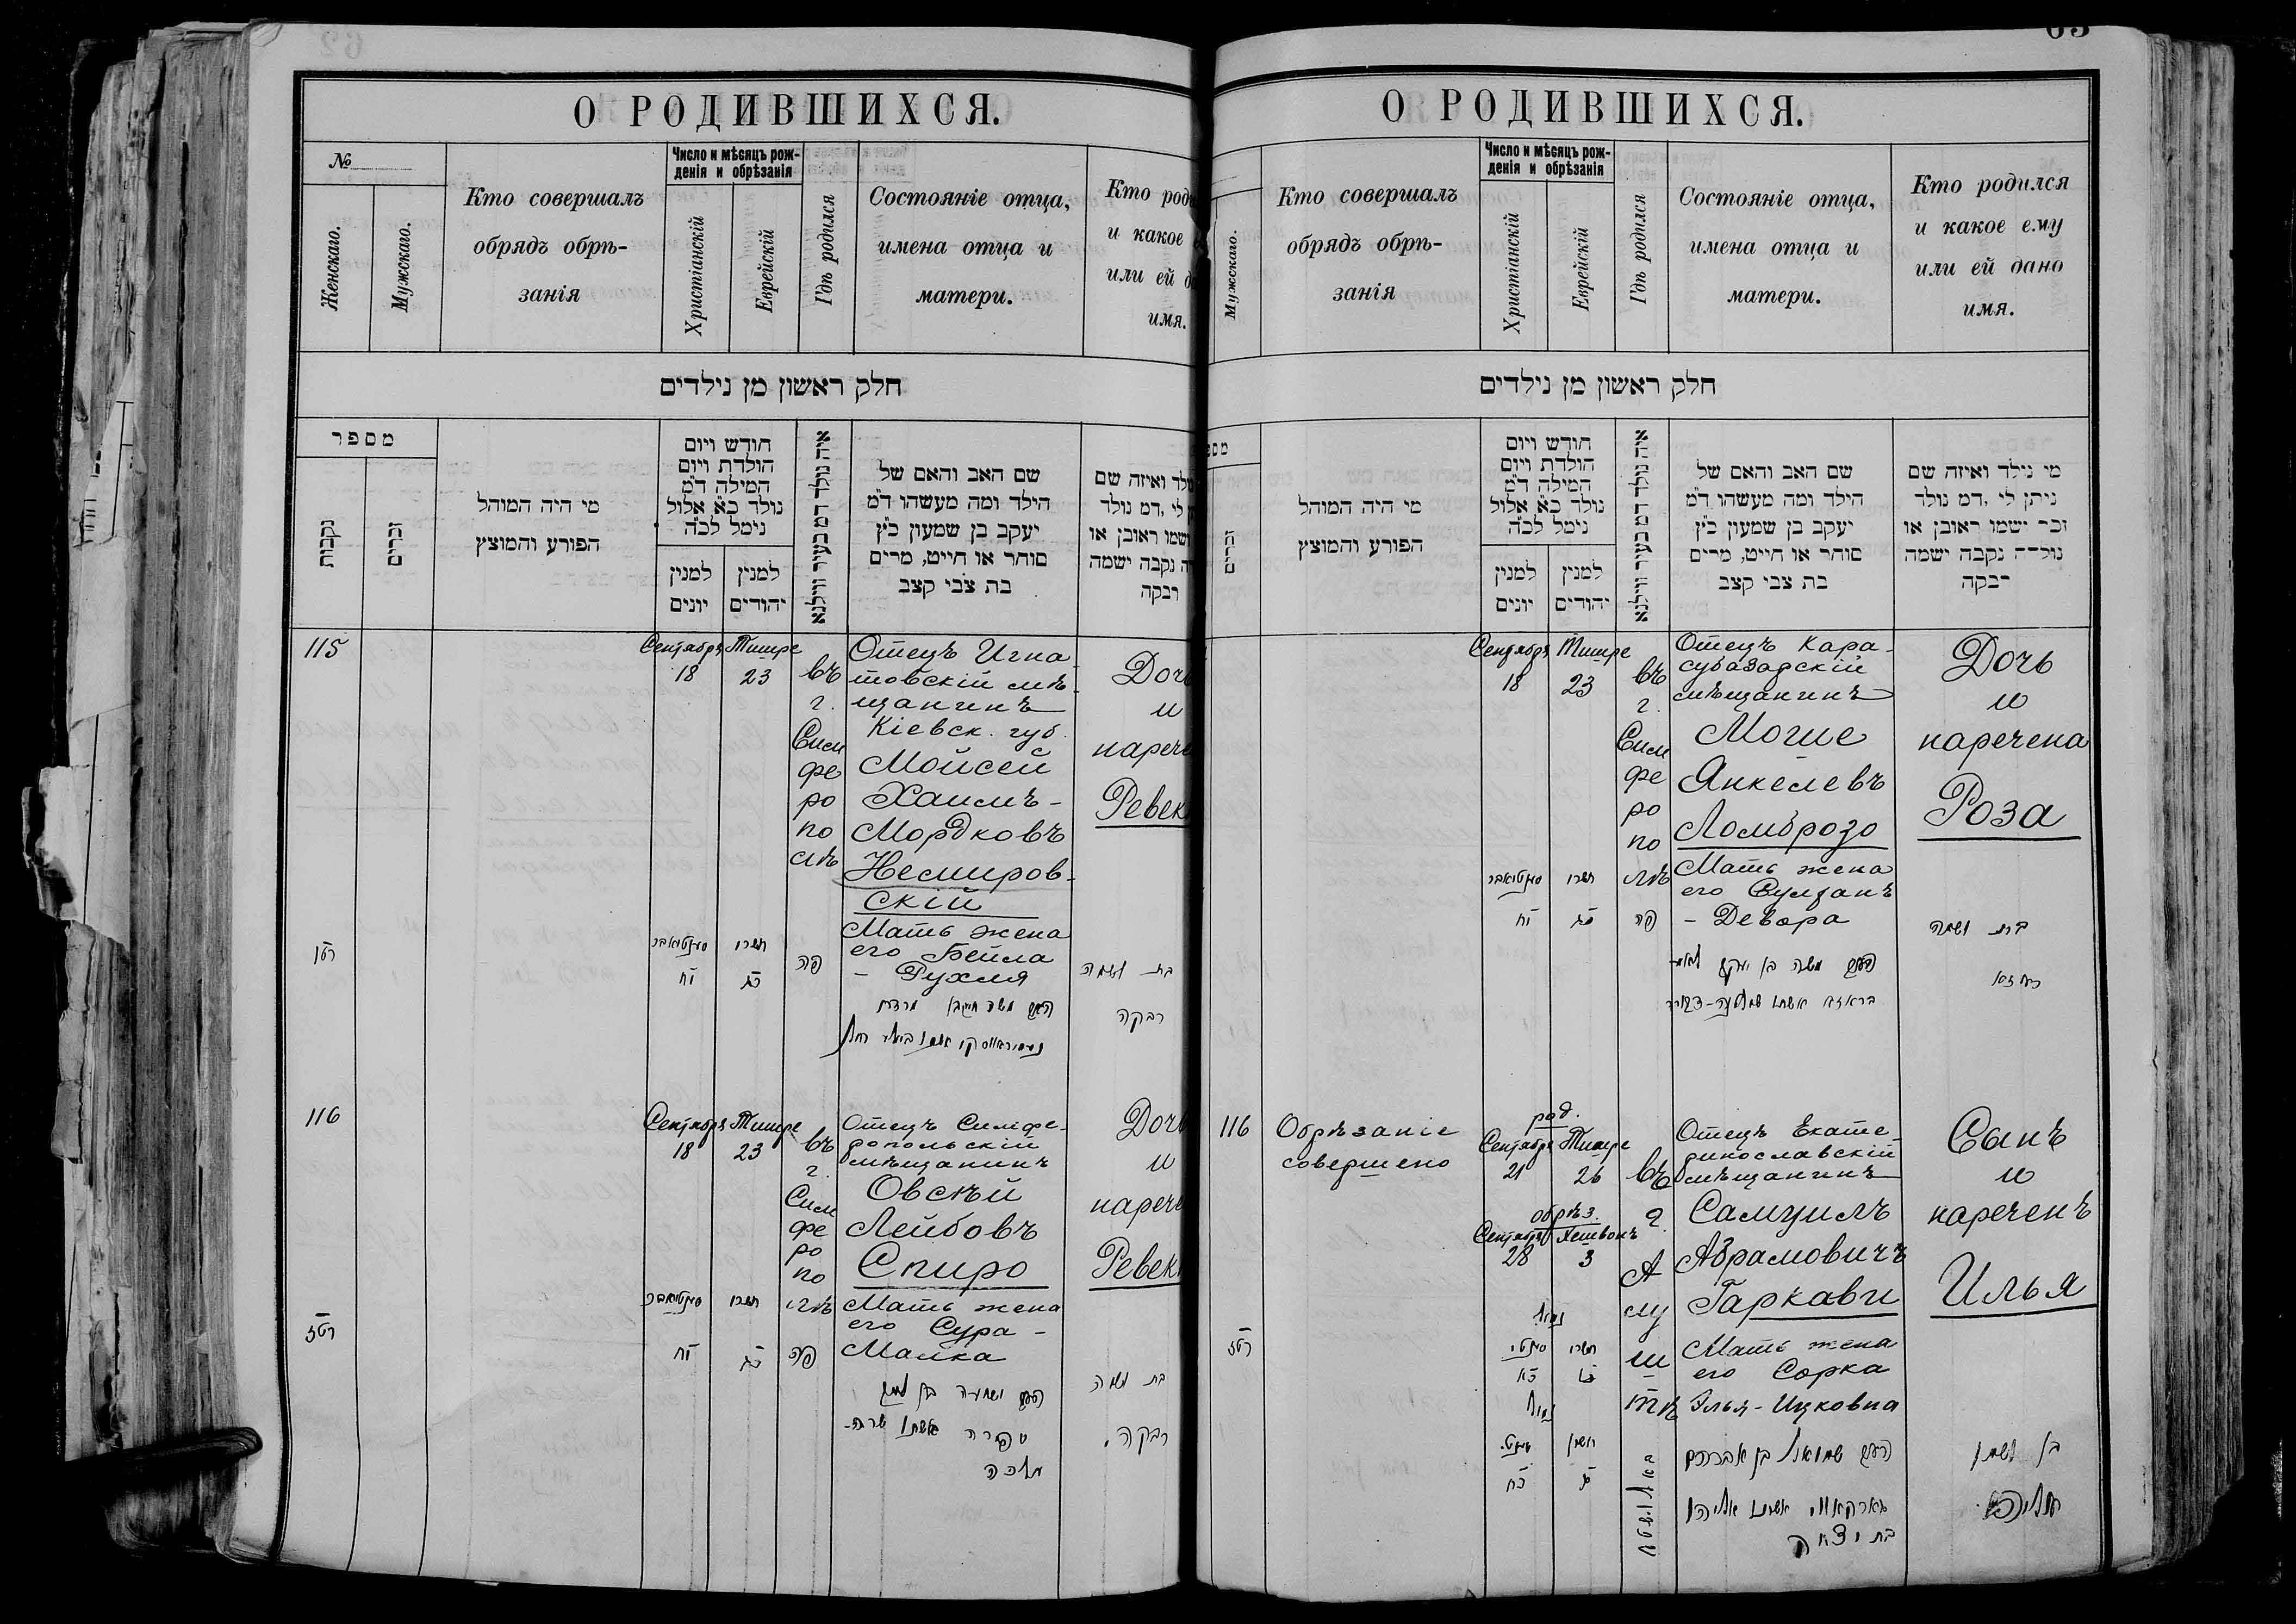 О РОДИВШИХСЯ.
№
Женскаго.
Мужскаго.
Кто совершалъ
обрядъ обрѣ-
занія
Число и мѣсяцъ рож-
денія и обрѣзанія
Христіанскій
Еврейскій
Гдѣ родился
Состояніе отца,
имена отца и
матери.
Кто роди
и какое
или ей д
имя.
חלק ראשון מן נילדים
מספר
נקבות
זכרים
מי היה המוהל
הפורע והמוצץ
חודש ויום
הולדת ויום
המילה ד״מ
נולד כ״א אלול
נימל לכ״ה
למנין
יונים
למנין
יהודים
איה נולד דמ בעיר ווילנא
שם האב והאם של
הילד ומה מעשהו ד״מ
יעקב בן שמעון כ״ץ
סוחר או חייט, מרים
בת צבי קצב
לד ואיזה שם
לי ,דמ נולד
ישמו ראובן או
ה נקבה ישמה
רבקה
115
Сентября
18
Тишре
23
въ
г.
Сим
фе
ро
по
лѣ
Отецъ Игна-
товскій мѣ-
щанинъ
Кіевск. губ.
Мойсей
Хаимъ-
Мордковъ
Немиров-
скій
Мать жена
его Бейла
- Рухля
Доч
и
нарече
Ревек
פה
בת ושמה
רבקה
116
Сентября
18
Тишре
23
въ
г.
Сим
фе
ро
по
лѣ
Отецъ Симфе-
ропольскій
мѣщанинъ
Овсѣй
Лейбовъ
Спиро
Мать жена
его Сура-
Малка
Доч
и
нарече
Ревек
פה
שפירא אשתו שרה
מלכה
בת ושמה
רבקה.
О РОДИВШИХСЯ.
Мужскаго.
Кто совершалъ
обрядъ обрѣ-
занія
Число и мѣсяцъ рож-
денія и обрѣзанія
Христіанскій
Еврейскій
Гдѣ родился
Состояніе отца,
имена отца и
матери.
Кто родился
и какое ему
или ей дано
имя.
חלק ראשון מן נילדים
מספ
זכרים
מי היה המוהל
הפורע והמוצץ
חודש ויום
הולדת ויום
המילה ד״מ
נולד כ״א אלול
נימל לכ״ה
למנין
יונים
למנין
יהודים
איה נולד דמ בעיר ווילנא
שם האב והאם של
הילד ומה מעשהו ד״מ
יעקב בן שמעון כ״ץ
סוחר או חייט, מרים
בת צבי קצב
מי נילד ואיזה שם
ניתן לי ,דמ נולד
זכר ישמו ראובן או
נולדה נקבה ישמה
רבקה
Сентября
18
Тишре
23
въ
г.
Сим
фе
ро
по
лѣ
Отецъ Кара-
субазарскій
мѣщанинъ
Могие
Янкелевъ
Ломброзо
Мать жена
его Султанъ
- Девора
Дочь
и
наречена
Роза
פה
בת ושמה
116
Обрѣзаніе
совершено
род.
Сентября
21
Тишре
26
обрѣз.
Сентября
28
Хешвонъ
3
въ
г.
А
лу
ш
тѣ
Отецъ Екате-
ринославскій
мѣщанинъ
Самуилъ
Абрамовичъ
Гаркави
Мать жена
его Сорка
Элья-Ицковна
Сынъ
и
нареченъ
Илья
שמואל בן אברהם
בן ושמו